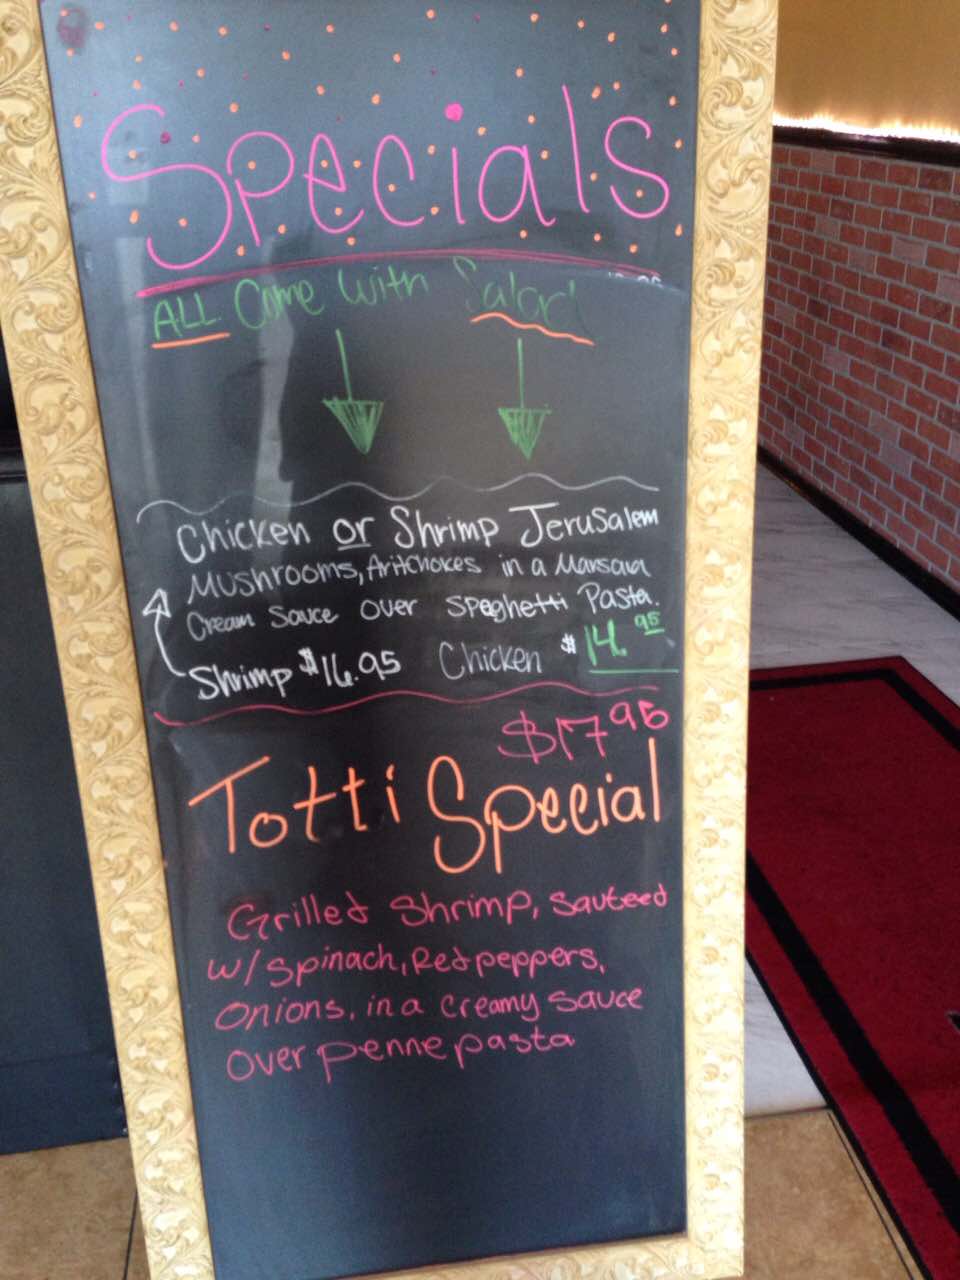 Specials
ALL Come With Salad
Chicken or Shrimp Jerusalem
Mushrooms, Aritchokes in a Marsala
Cream Sauce over Speghetti Pasta.
Shrimp $16.95 Chicken $14.95
$17.95
Totti Special
Grilled Shrimp, sauteed
w/ spinach, Red peppers,
onions, in a creamy sauce
over penne pasta